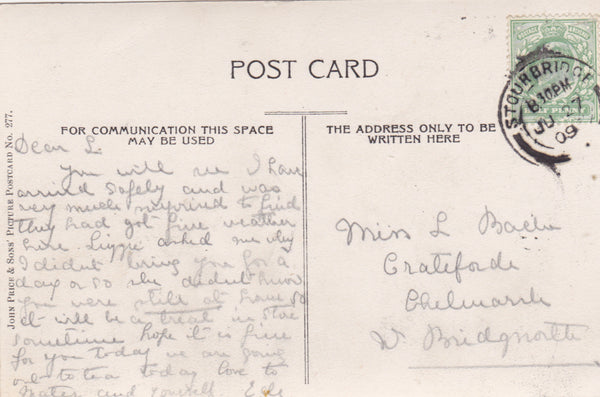 POST CARD
FOR COMMUNICATION THIS SPACE
MAY BE USED
THE ADDRESS ONLY TO BE
WRITTEN HERE
STOURBRIDGE
8 30 PM
JU 27
09
JOHN PRICE & SONS' PICTURE POSTCARD No. 277.
Dear L.
You will see I have
arrived safely and was
very much surprised to find
they had got fine weather
here. Lizzie asked me why
I didnt bring you for a
day or so she didnt know
you were still at home so
it will be a treat in store
sometime hope it is fine
for you today we are going
out to tea today love to
Mater and yourself.
Miss L
Chelmarsh
Nr Bridgnorth